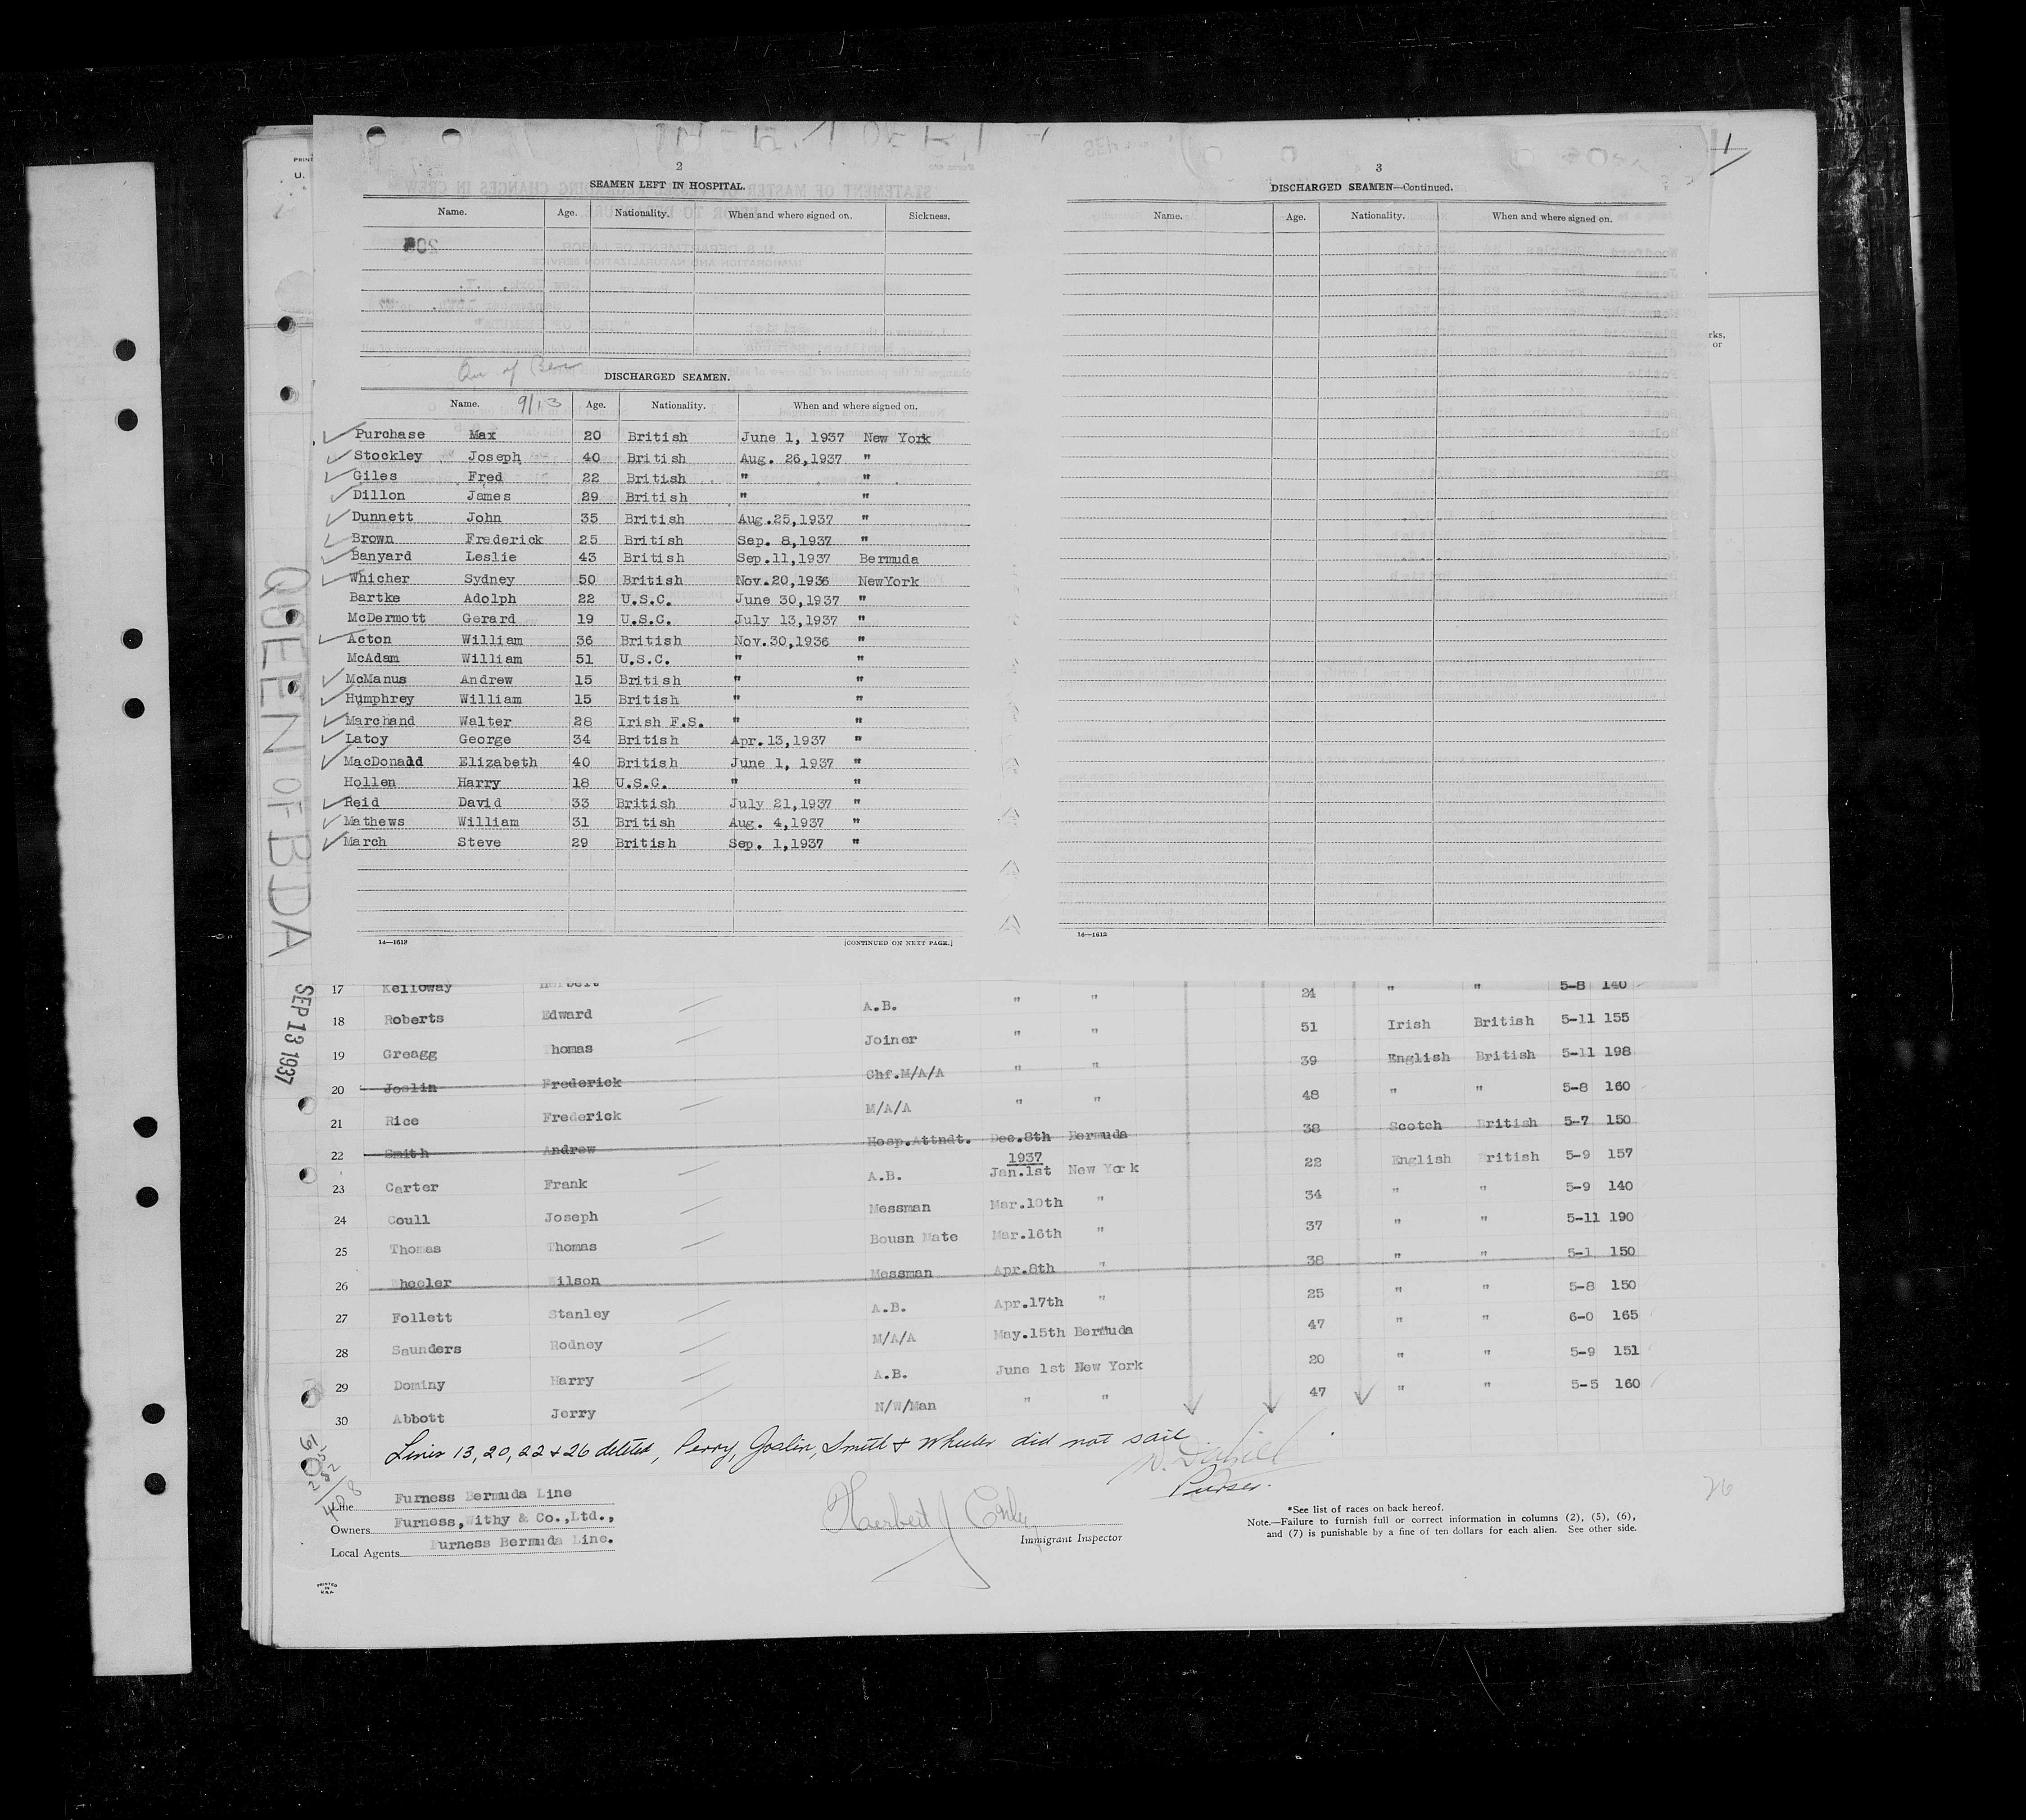 2
SEAMEN LEFT IN HOSPITAL.
Name. Age. Nationality. When and where signed on. Sickness.
DISCHARGED SEAMEN.
Name. 9/13 Age. Nationality. When and where signed on.
Purchase Max 20 British June 1, 1937 New York
Stockley Joseph 40 British Aug. 26,1937 "
Giles Fred 22 British " "
Dillon James 29 British " "
Dunnett John 35 British Aug.25,1937 "
Brown Frederick 25 British Sep. 8,1937 "
Banyard Leslie 43 British Sep.11,1937 Bermuda
Whicher Sydney 50 British Nov.20,1936 NewYork
Bartke Adolph 22 U.S.C. June 30,1937 "
McDermott Gerard 19 U.S.C. July 13,1937 "
Acton William 36 British Nov.30,1936 "
McAdam William 51 U.S.C. " "
McManus Andrew 15 British " "
Humphrey William 15 British " "
Marchand Walter 28 Irish F.S. " "
Latoy George 34 British Apr.13,1937 "
MacDonald Elizabeth 40 British June 1, 1937 "
Hollen Harry 18 U.S.C. " "
Reid David 33 British July 21,1937 "
Mathews William 31 British Aug. 4,1937 "
March Steve 29 British Sep. 1,1937 "
14—1612 [CONTINUED ON NEXT PAGE.]
3
DISCHARGED SEAMEN—Continued.
Name. Age. Nationality. When and where signed on.
14—1612
1
rks,
or
PRINT
U.
QUEEN OF BDA
SEP 13 1937
17 Kelloway Herbert A.B. " " 24 " " 5-8 140
18 Roberts Edward Joiner " " 51 Irish British 5-11 155
19 Greagg Thomas Chf.M/A/A " " 39 English British 5-11 198
20 Joslin Frederick M/A/A " " 48 " " 5-8 160
21 Rice Frederick Hosp.Attndt. Dec.8th Bermuda 38 Scotch British 5-7 150
1937
22 Smith Andrew A.B. Jan.1st New York 22 English British 5-9 157
23 Carter Frank Messman Mar.10th " 34 " " 5-9 140
24 Coull Joseph Bousn Mate Mar.16th " 37 " " 5-11 190
25 Thomas Thomas Messman Apr.8th " 38 " " 5-1 150
26 Wheeler Wilson A.B. Apr.17th " 25 " " 5-8 150
27 Follett Stanley M/A/A May.15th Bermuda 47 " " 6-0 165
28 Saunders Rodney A.B. June 1st New York 20 " " 5-9 151
29 Dominy Harry N/W/Man " " 47 " " 5-5 160
30 Abbott Jerry
Lines 13, 20, 22 & 26 deleted, Perry, Joslin, Smith & Wheeler did not sail
Purser.
Line Furness Bermuda Line
Owners Furness, Withy & Co.,Ltd.,
Local Agents Furness Bermuda Line.
Immigrant Inspector
*See list of races on back hereof.
Note.—Failure to furnish full or correct information in columns (2), (5), (6),
and (7) is punishable by a fine of ten dollars for each alien. See other side.
26
PRINTED
IN
U.S.A.